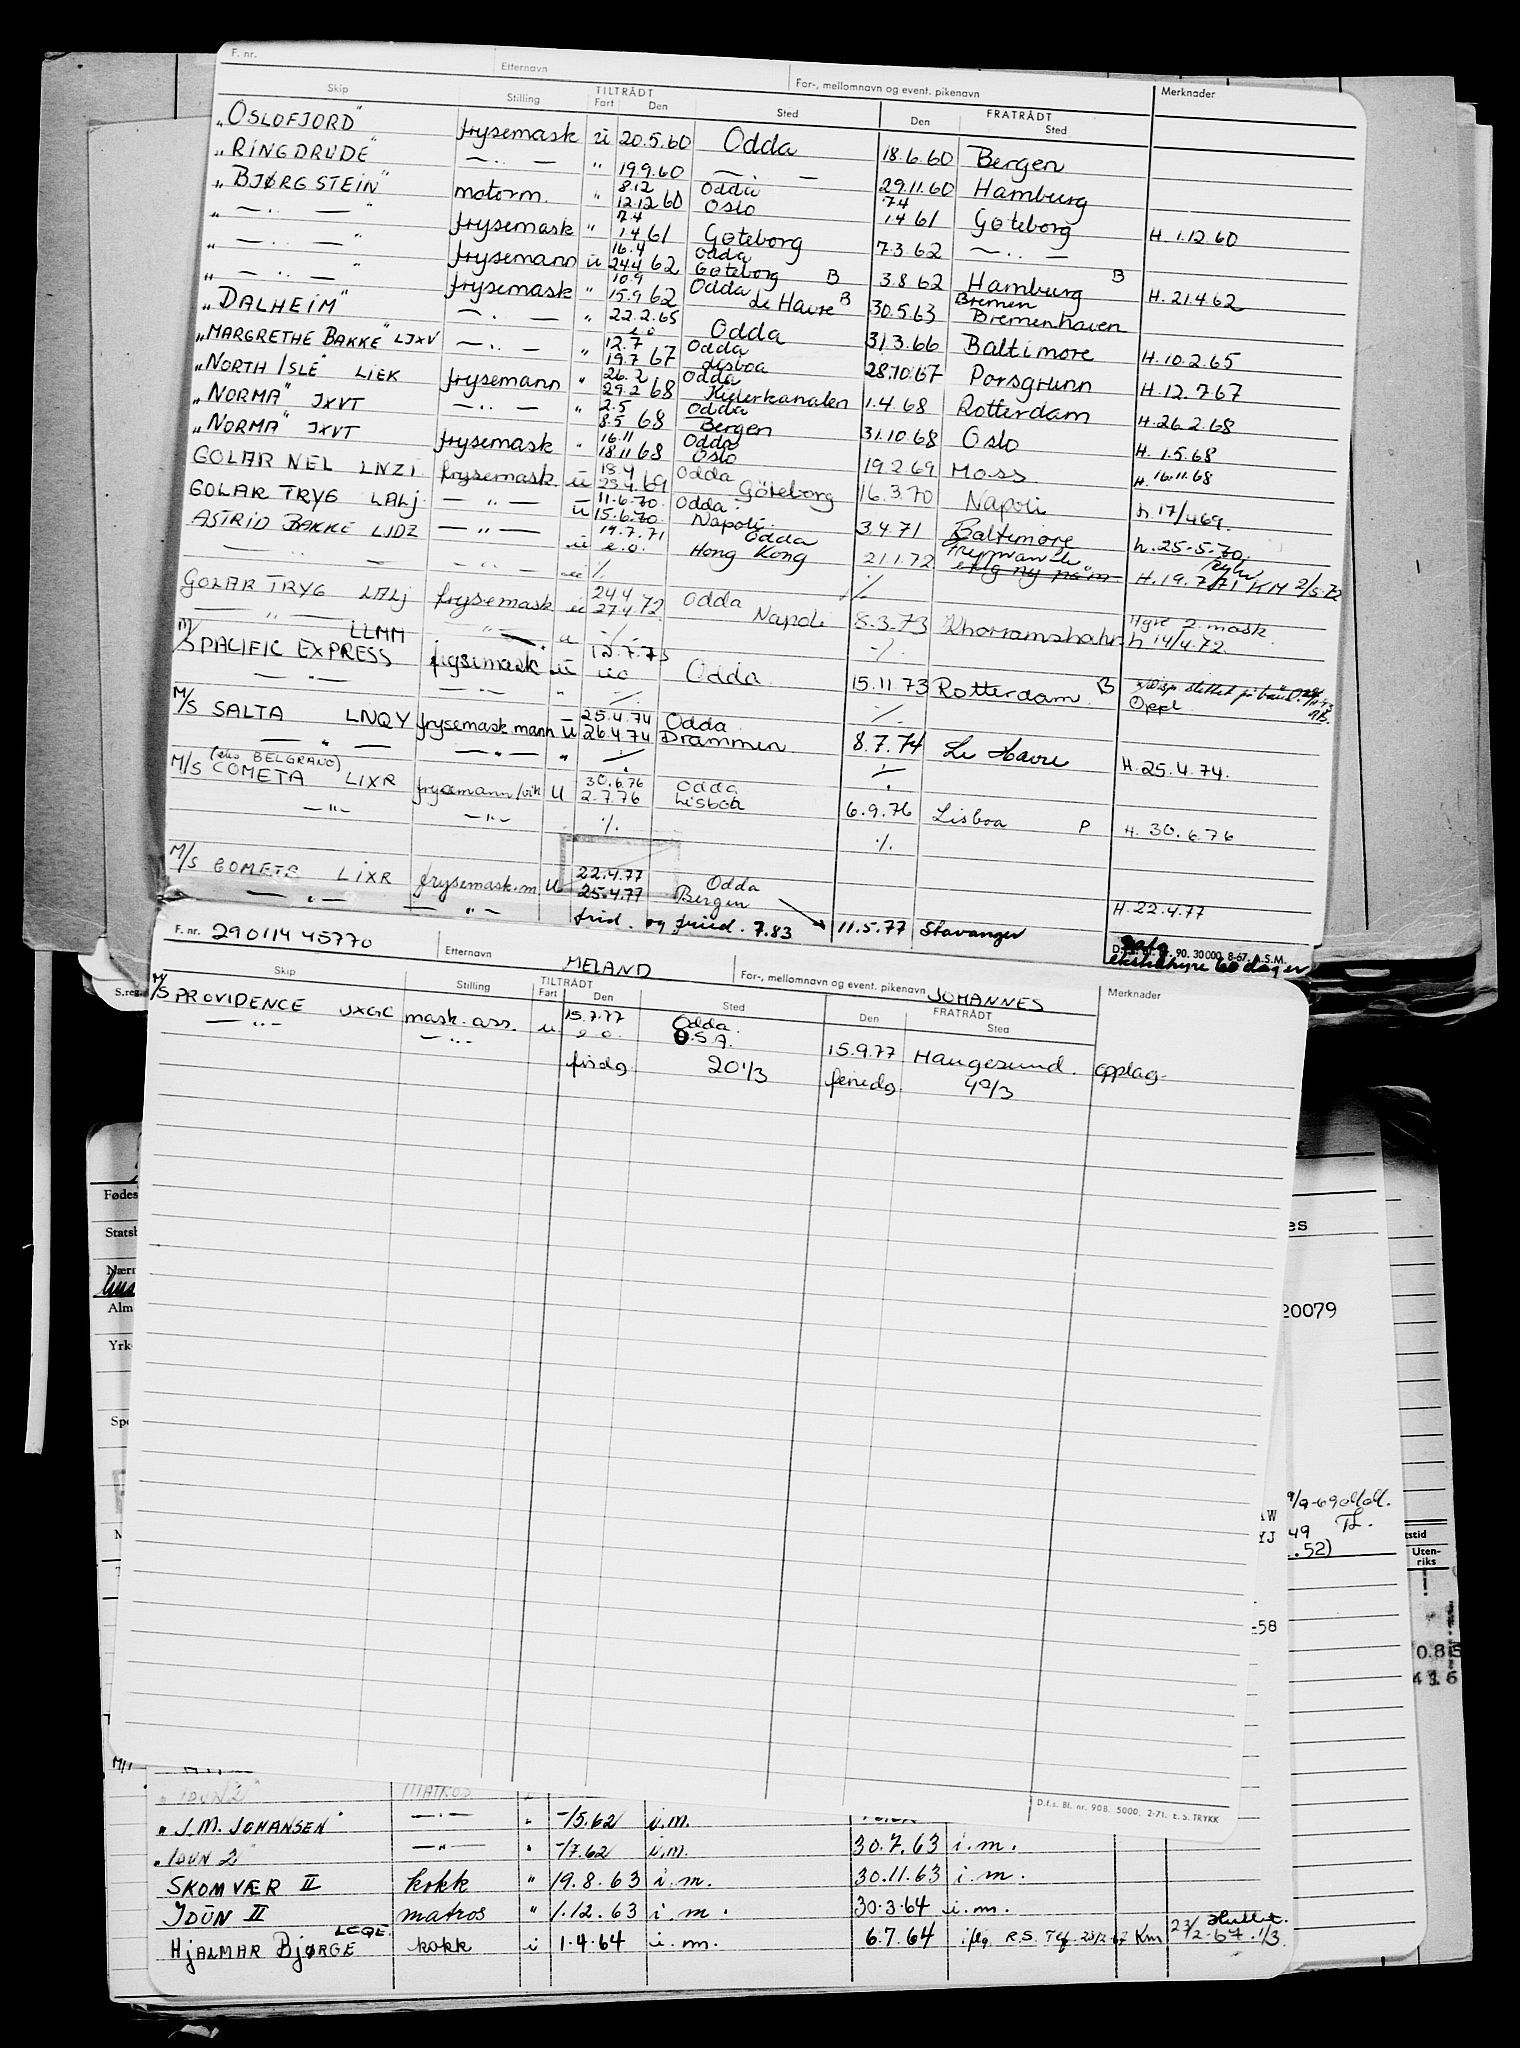 F. nr. Etternavn For-, mellomnavn og event. pikenavn Merknader
Skip Stilling TILTRÅDT Fart Den Sted FRATRÅDT Den Sted
"OSLOFJORD" frysemask ü 20.5.60 Odda 18.6.60 Bergen
"RINGDRUDE" — .. — " 19.9.60 — . — 29.11.60 Hamburg
"BJØRGSTEIN" motorm. " 8.12 12.12 60 Odda Oslo 7.4 14 61 Göteborg H. 1.12.60
" — .. — " frysemask " 7.4 14 61 Göteborg 7.3 62 — .. —
" — .. — " frysemann ü 16.4 24.4 62 Odda Göteborg B 3.8 62 Hamburg B H. 21.4.62
" — .. — " frysemask " 10.9 15.9 62 Odda Le Havre B 30.5.63 Bremen Bremenhaven
"DALHEIM" — .. — " 22.2.65 e.o Odda 31.3.66 Baltimore H. 10.2.65
"MARGRETHE BAKKE" LJXV — .. — " 12.7 19.7 67 Odda Lisboa 28.10.67 Porsgrunn H. 12.7.67
"NORTH ISLE" LIEK frysemann " 26.2 29.2 68 Odda Kielerkanalen 1.4 68 Rotterdam H. 26.2.68
"NORMA" JXVT — .. — " 2.5 8.5 68 Odda Bergen 31.10.68 Oslo H. 1.5.68
"NORMA" JXVT frysemask " 16.11 18.11 68 Odda Oslo 19.2 69 Moss H. 16.11.68
GOLAR NEL LNZI frysemask. ü 18.4 23.4.69 Odda Göteborg 16.3.70 Napoli h. 17/469.
GOLAR TRYG LALJ — " — ü 11.6.70. 15.6.70. Odda. Napoli. 3.4.71 Baltimore h. 25-5-70.
ASTRID BAKKE LJDZ — " — ü 19.7.71 e.o. Odda Hong Kong 21.1.72 Fremantle H. 19.7/71 KM 2/5-72
— .. — — " — ü ./. ./.
GOLAR TRYG LALJ frysemask ü 24.4 27.4.72 Odda Napoli 8.3.73 Khorramshahr Hyre 2. mask. h 14/4.72.
— " — — " — a ./. ./.
M/S PACIFIC EXPRESS LLMM frysemask ü 12.7.73 eo Odda 15.11.73 Rotterdam. B Oppl.
— " — — " — " ./. ./.
M/S SALTA LNQY frysemask mann ü 25.4.74 26.4 74 Odda Drammen 8.7.74 Le Havre H. 25.4.74.
— " — — " — " ./. ./.
(eks BELGRANO)
M/S COMETA LIXR frysemann/vik U 30.6.76 2.7.76 Odda Lisboa 6.9.76 Lisboa P H. 30.6.76
— " — — " — ./. ./.
M/S COMETA LIXR frysemask.m. U 22.4.77 25.4.77 Odda Bergen 11.5.77 Stavanger H. 22.4.77
— " — — " — frid. og fried. 7.83
90. 30000. 8-67. A.S.M.
ekstrahyre 60 dager
F. nr. 290114 45770 Etternavn MELAND For-, mellomnavn og event. pikenavn JOHANNES Merknader
S.reg.
Skip Stilling TILTRÅDT Fart Den Sted FRATRÅDT Den Sted
M/S PROVIDENCE JXGC mask. ass. u 15.7.77 e.o. Odda. U.S.A. 15.9.77 Haugesund. opplag.
— " — — " —
fridg 20 1/3 feriedg. 4 2/3
Fødes
Statsb
Nærm
Alm
Yrk
Spe
es
20079
9/9-69
AW
YJ 49
.. 52)
tstid
Uten-
riks
-58
0.85
416
D.f.s. Bl. nr. 908. 5000. 2-71. E.S. TRYKK
"IDUN 2" MATROS
"J.M. JOHANSEN" — " — " -/5.62 i.m.
"IDUN 2 — " — " -/7.62 i.m. 30.7.63 i.m.
SKOMVÆR II kokk " 19.8.63 i.m. 30.11.63 i.m.
IDUN II matros " 1.12.63 i.m. 30.3.64 i.m.
HJALMAR BJØRGE LCQE. kokk i 1.4.64 i.m. 6.7.64 iflg R.S. Tlf. 23/2-67 Km 23/2-67. 1/3